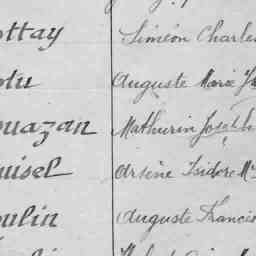 ottay Siméon Charle
Auguste Marie
ouazan Mathurin Joseph
uisel Arsène Isidore M
oulin Auguste Francis